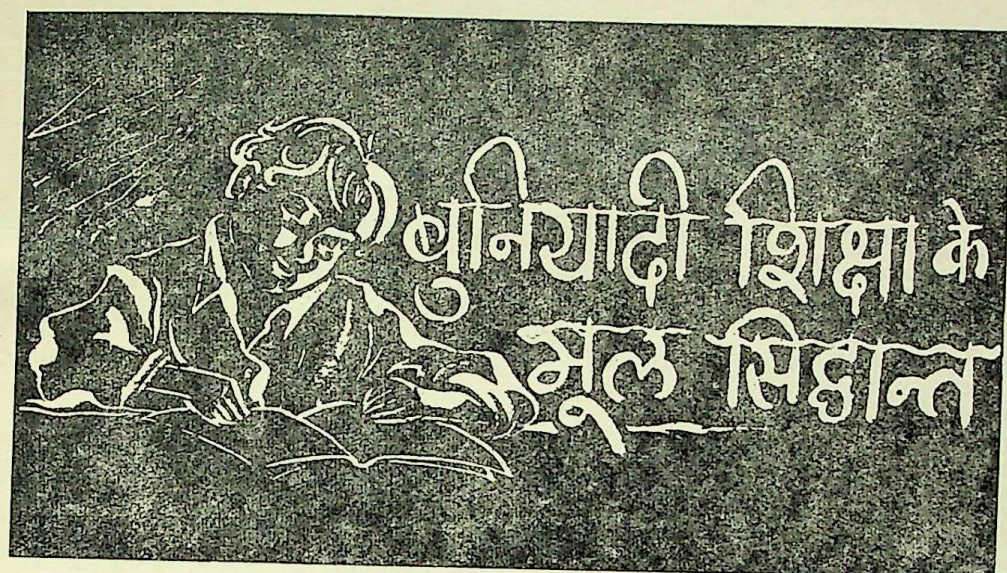 बुनियादी शिक्षा के
मूल सिद्धान्त